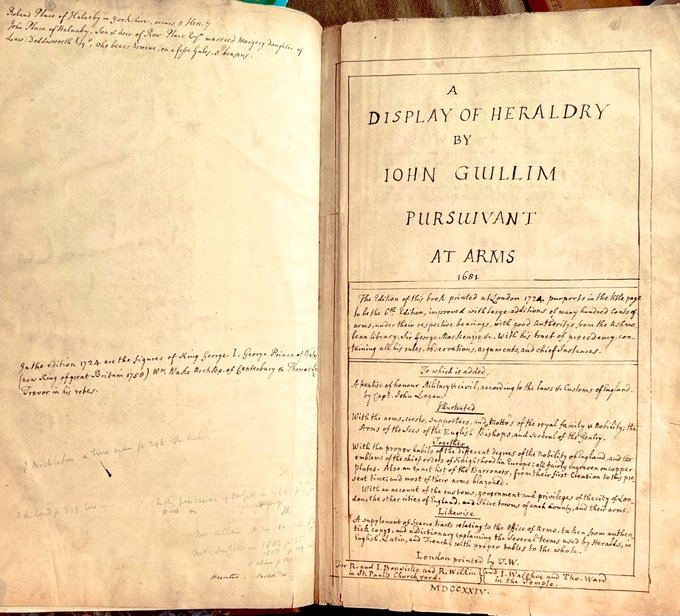 Roland Place of Halnaby in Yorkshire.
John Place of Halnaby. Son & heir of Row: Place Esqr. married Margery daughter of
Laur: Doddsworth Esqr. who bears Ermine, on a fesse Gules, 3 besans.
In the edition 1724 are the figures of King George I. George Prince of Wales
(now King of great Britain 1758) Wm. Wake Archbp. of Canterbury & Thomas Ld.
Trevor in his robes.
A
DISPLAY OF HERALDRY
BY
IOHN GUILLIM
PURSUIVANT
AT ARMS
1681
The Edition of this book printed at London 1724, purports in the title page
to be the 6th Edition, improved with large additions of many hundred Coats of
arms, under their respective bearings, with good Authoritys, from the Ashmo
lean library, Sir George MacKenzie &c. With his tract of precedency, con-
taining all his rules, observations, arguments, and chief Instances.
To which is added,
A treatise of honour Military & civil, according to the laws & Customs of England.
by Capt. John Logan.
Illustrated
With the arms, crests, supporters, and Motto's of the royal family & Nobility, the
Arms of the Sees of the English Bishops, and several of the Gentry.
Together
With the proper habits of the different degrees of the Nobility of England, and the
emblems of the chief orders of Knighthood in Europe; all fairly engraven on copper
plates. Also an exact list of the Barronets, from their first Creation to this pre
sent time; and most of their arms blazoned.
With an account of the customs, government and privileges of the city of Lon
don, the other cities of England, and Shire towns of each county, and their arms.
Likewise
A supplement of Scarce tracts relating to the Office of Arms, taken from authen
tick copys, and a Dictionary explaining the Several terms used by Heralds, in
English, Latin, and French; with proper tables to the whole.
London printed by T.W.
For R. and I. Bonwicke and R. Wilkin and I. Walthoe and Tho. Ward
in St. Paul's Church yard. in the Temple.
MDCCXXIV.